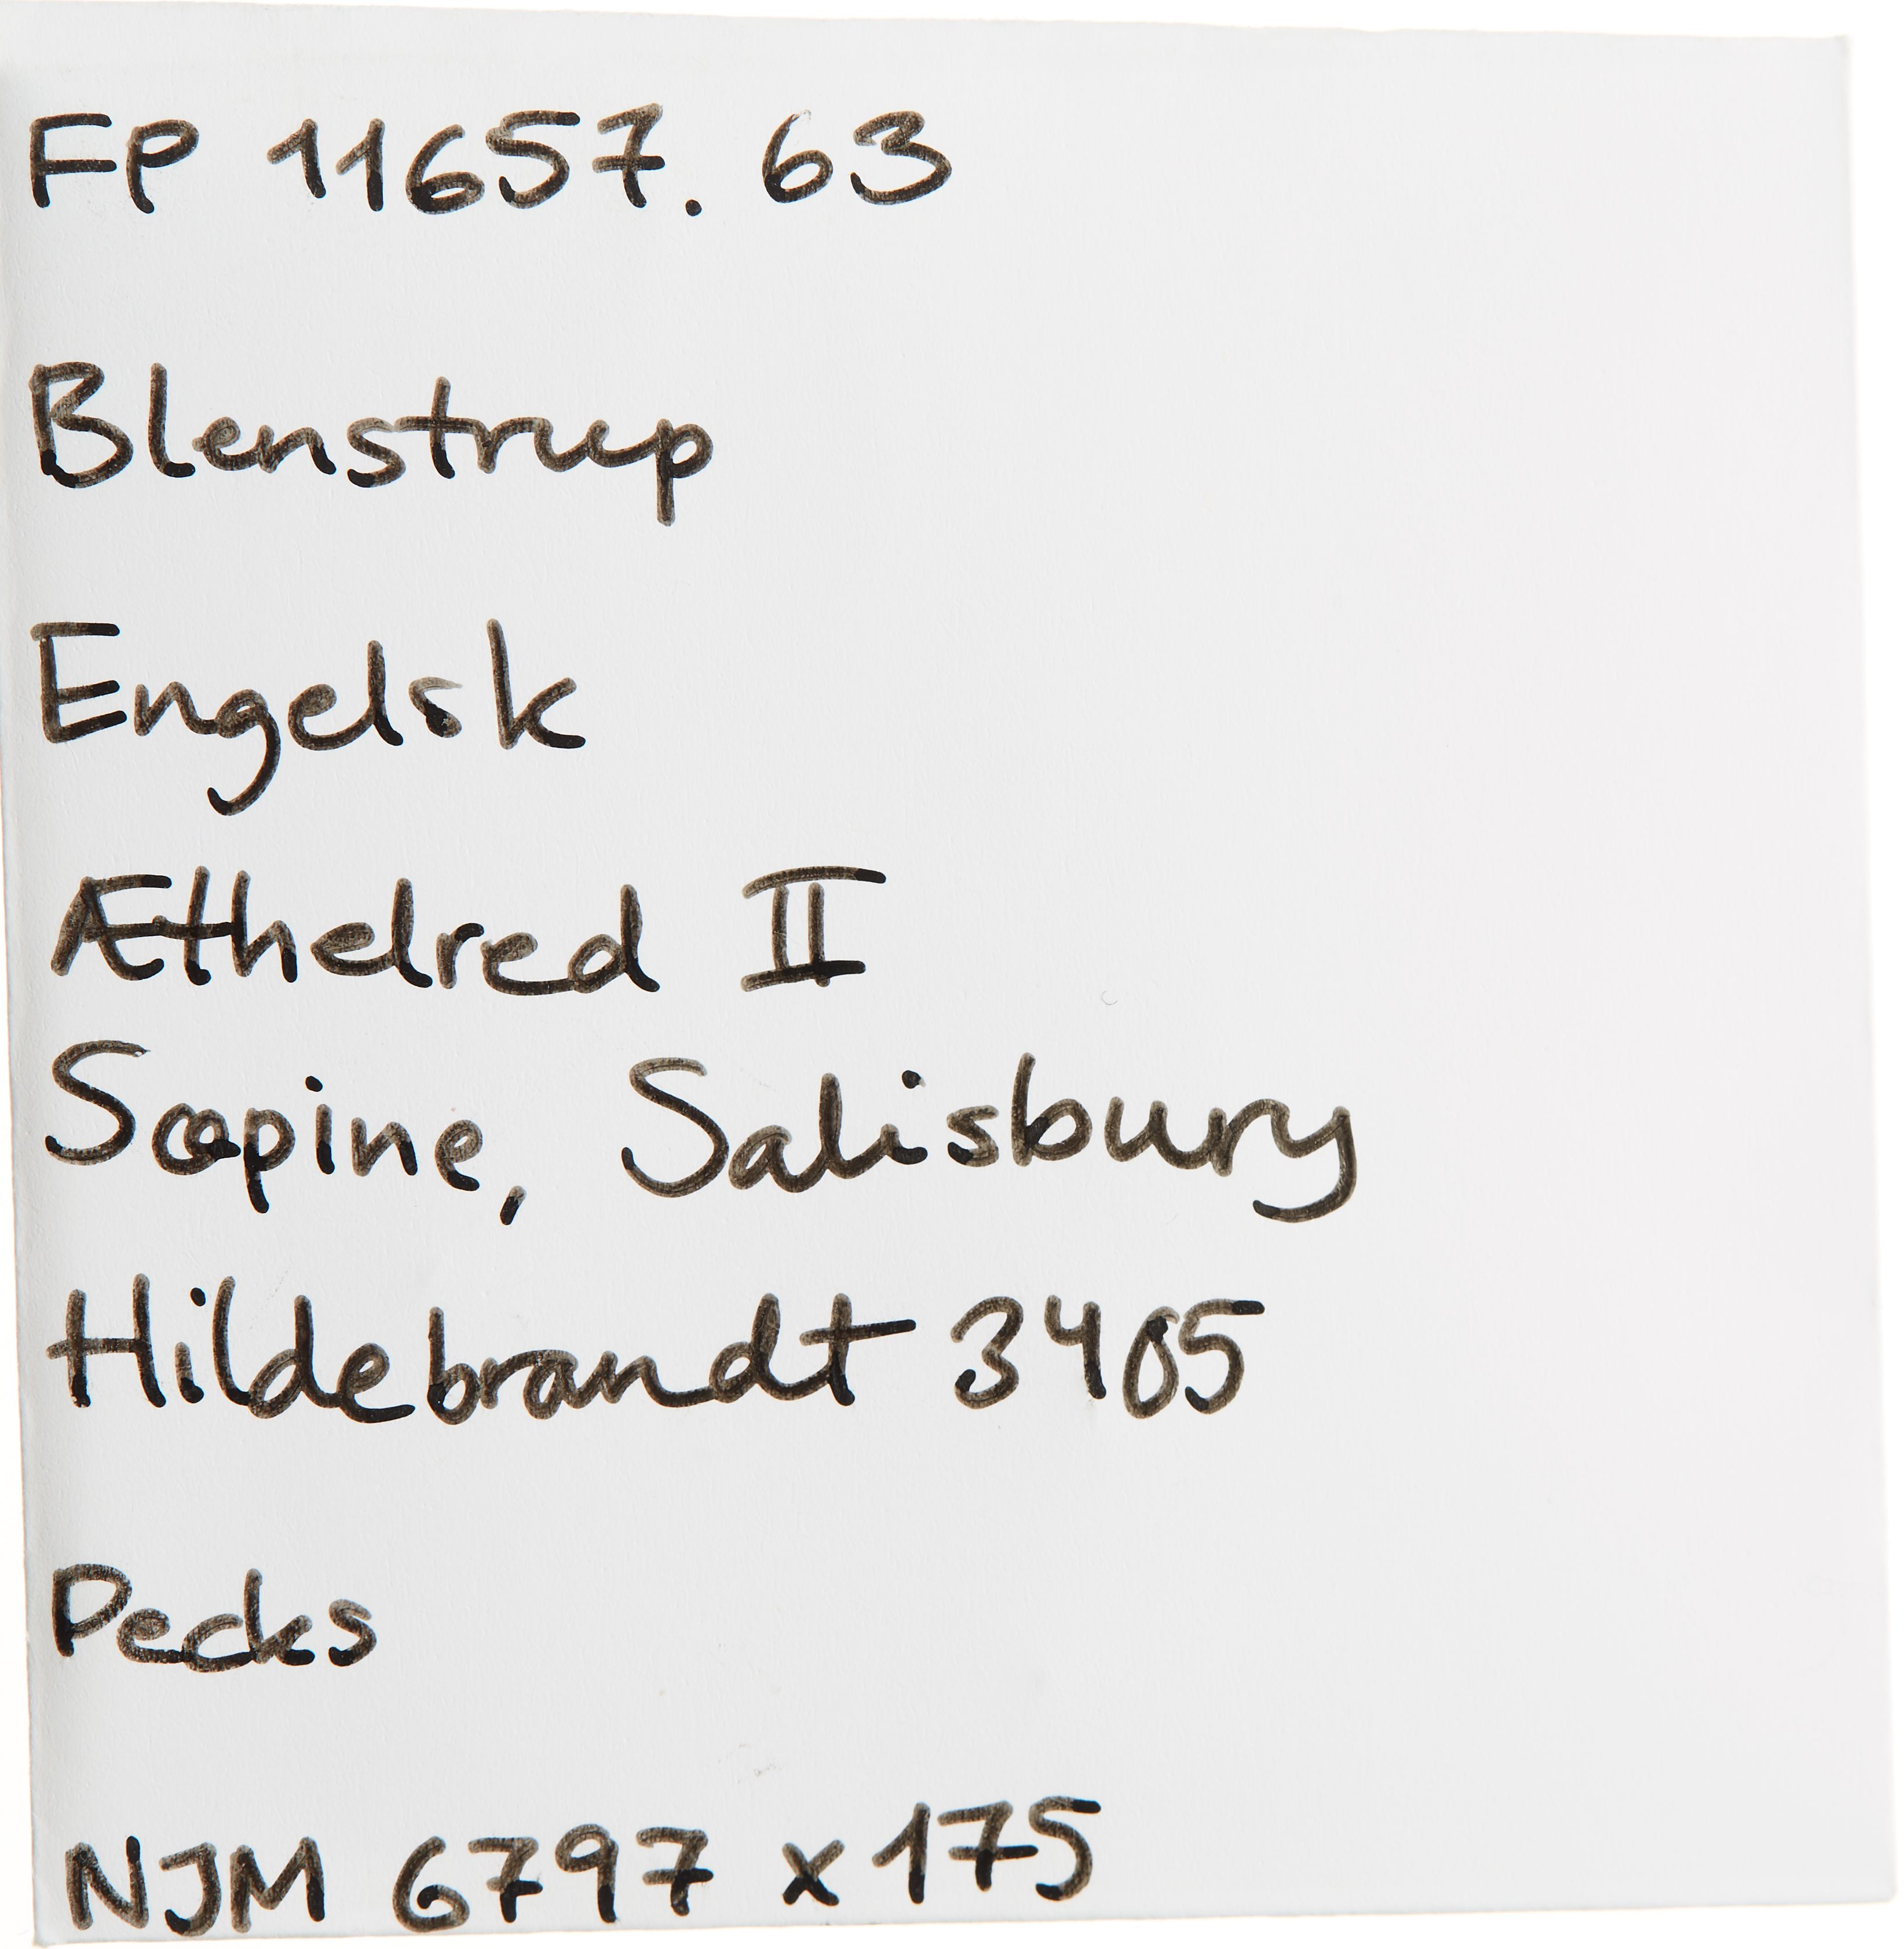 FP 11657.63
Blenstrup
Engelsk
Æthelred II
Sæpine, Salisbury
Hildebrandt 3405
Pecks
NJM 6797 x175